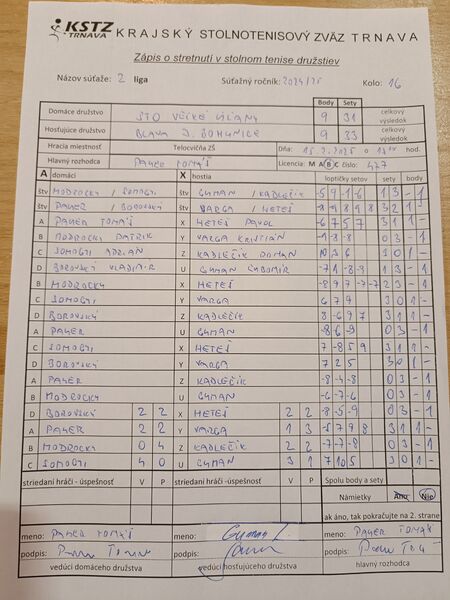 KSTZ TRNAVA KRAJSKÝ STOLNOTENISOVÝ ZVÄZ TRNAVA
Zápis o stretnutí v stolnom tenise družstiev
Názov súťaže: 2 liga Súťažný ročník: 2024/25 Kolo: 16
Body Sety
Domáce družstvo STO VEĽKÉ ÚĽANY 9 31 celkový výsledok
Hosťujúce družstvo BLAVA J. BOHUNICE 9 33 celkový výsledok
Hracia miestnosť Telocvičňa ZŠ Dňa: hod.
Hlavný rozhodca PAHER TOMÁŠ Licencia: M A B C číslo: 427
A domáci X hostia loptičky setov sety body
štv MODROCKY / SOMOGYI štv GYMAN / KADLEČÍK -5 9 -1 -6 1 3 - 1
štv PAHER / BOROVSKÝ štv VARGA / HETEŠ 3 2 1 -
A PAHER TOMÁŠ X HETEŠ PAVOL -6 7 5 7 3 1 1 -
B MODROCKY PATRIK Y VARGA KRISTIÁN 0 3 - 1
C SOMOGYI ADRIÁN Z KADLEČÍK ROMAN 10 3 6 3 0 1 -
D BOROVSKÝ VLADIMÍR U GYMAN ĽUBOMÍR -7 1 -8 -3 1 3 - 1
B MODROCKY X HETEŠ -8 9 7 -7 -7 2 3 - 1
C SOMOGYI Y VARGA 6 7 9 3 0 1 -
D BOROVSKÝ Z KADLEČÍK 8 -6 9 7 3 1 1 -
A PAHER U GYMAN -8 -6 -9 0 3 - 1
C SOMOGYI X HETEŠ 7 -8 5 9 3 1 1 -
D BOROVSKÝ Y VARGA 7 2 5 3 0 1 -
A PAHER Z KADLEČÍK -8 -4 -8 0 3 - 1
B MODROCKY U GYMAN -6 -7 -6 0 3 - 1
D BOROVSKÝ 2 2 X HETEŠ 2 2 -8 -5 -9 0 3 - 1
A PAHER 2 2 Y VARGA 1 3 -5 7 9 8 3 1 1 -
B MODROCKY 0 4 Z KADLEČÍK 2 2 -7 -7 -8 0 3 - 1
C SOMOGYI 4 0 U GYMAN 3 1 7 10 5 3 0 1 -
striedaní hráči - úspešnosť V P striedaní hráči - úspešnosť V P Spolu body a sety
Námietky Áno Nie
ak áno, tak pokračujte na 2. strane
meno: PAHER TOMÁŠ meno: Gyman Ľ. meno: PAHER TOMÁŠ
podpis: podpis: podpis:
vedúci domáceho družstva vedúci hosťujúceho družstva hlavný rozhodca